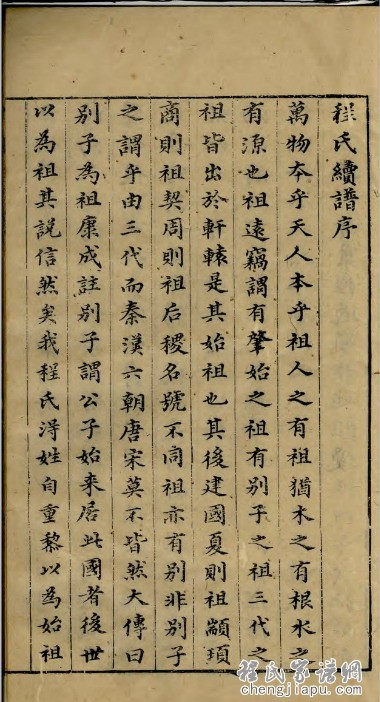 程氏續譜序
萬物夲乎天人本乎祖人之有祖猶木之有根水之
有源也祖遠竊謂有肇始之祖有别子之祖三代之
祖皆出於軒轅是其始祖也其後建國夏則祖顓頊
商則祖契周則祖后稷名號不同祖亦有别非别子
之謂乎由三代而秦漢六朝唐宋莫不皆然大傳曰
别子為祖康成註别子謂公子始来居此國者後世
以為祖其說信然矣我程氏得姓自重黎以為始祖
程氏家譜網
chengjiapu.com